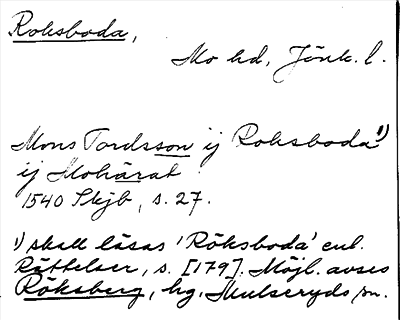 Roksboda,
Mo hd, Jönk. l.
Mons Tordsson ij Roksboda¹⁾
ij Mohärat
1540 Skjb, s. 27.
¹⁾ skall läsas 'Röksboda' enl.
Rättelser, s. [179]. Möjl. avses
Röksberg, hg, Hulseryds sn.